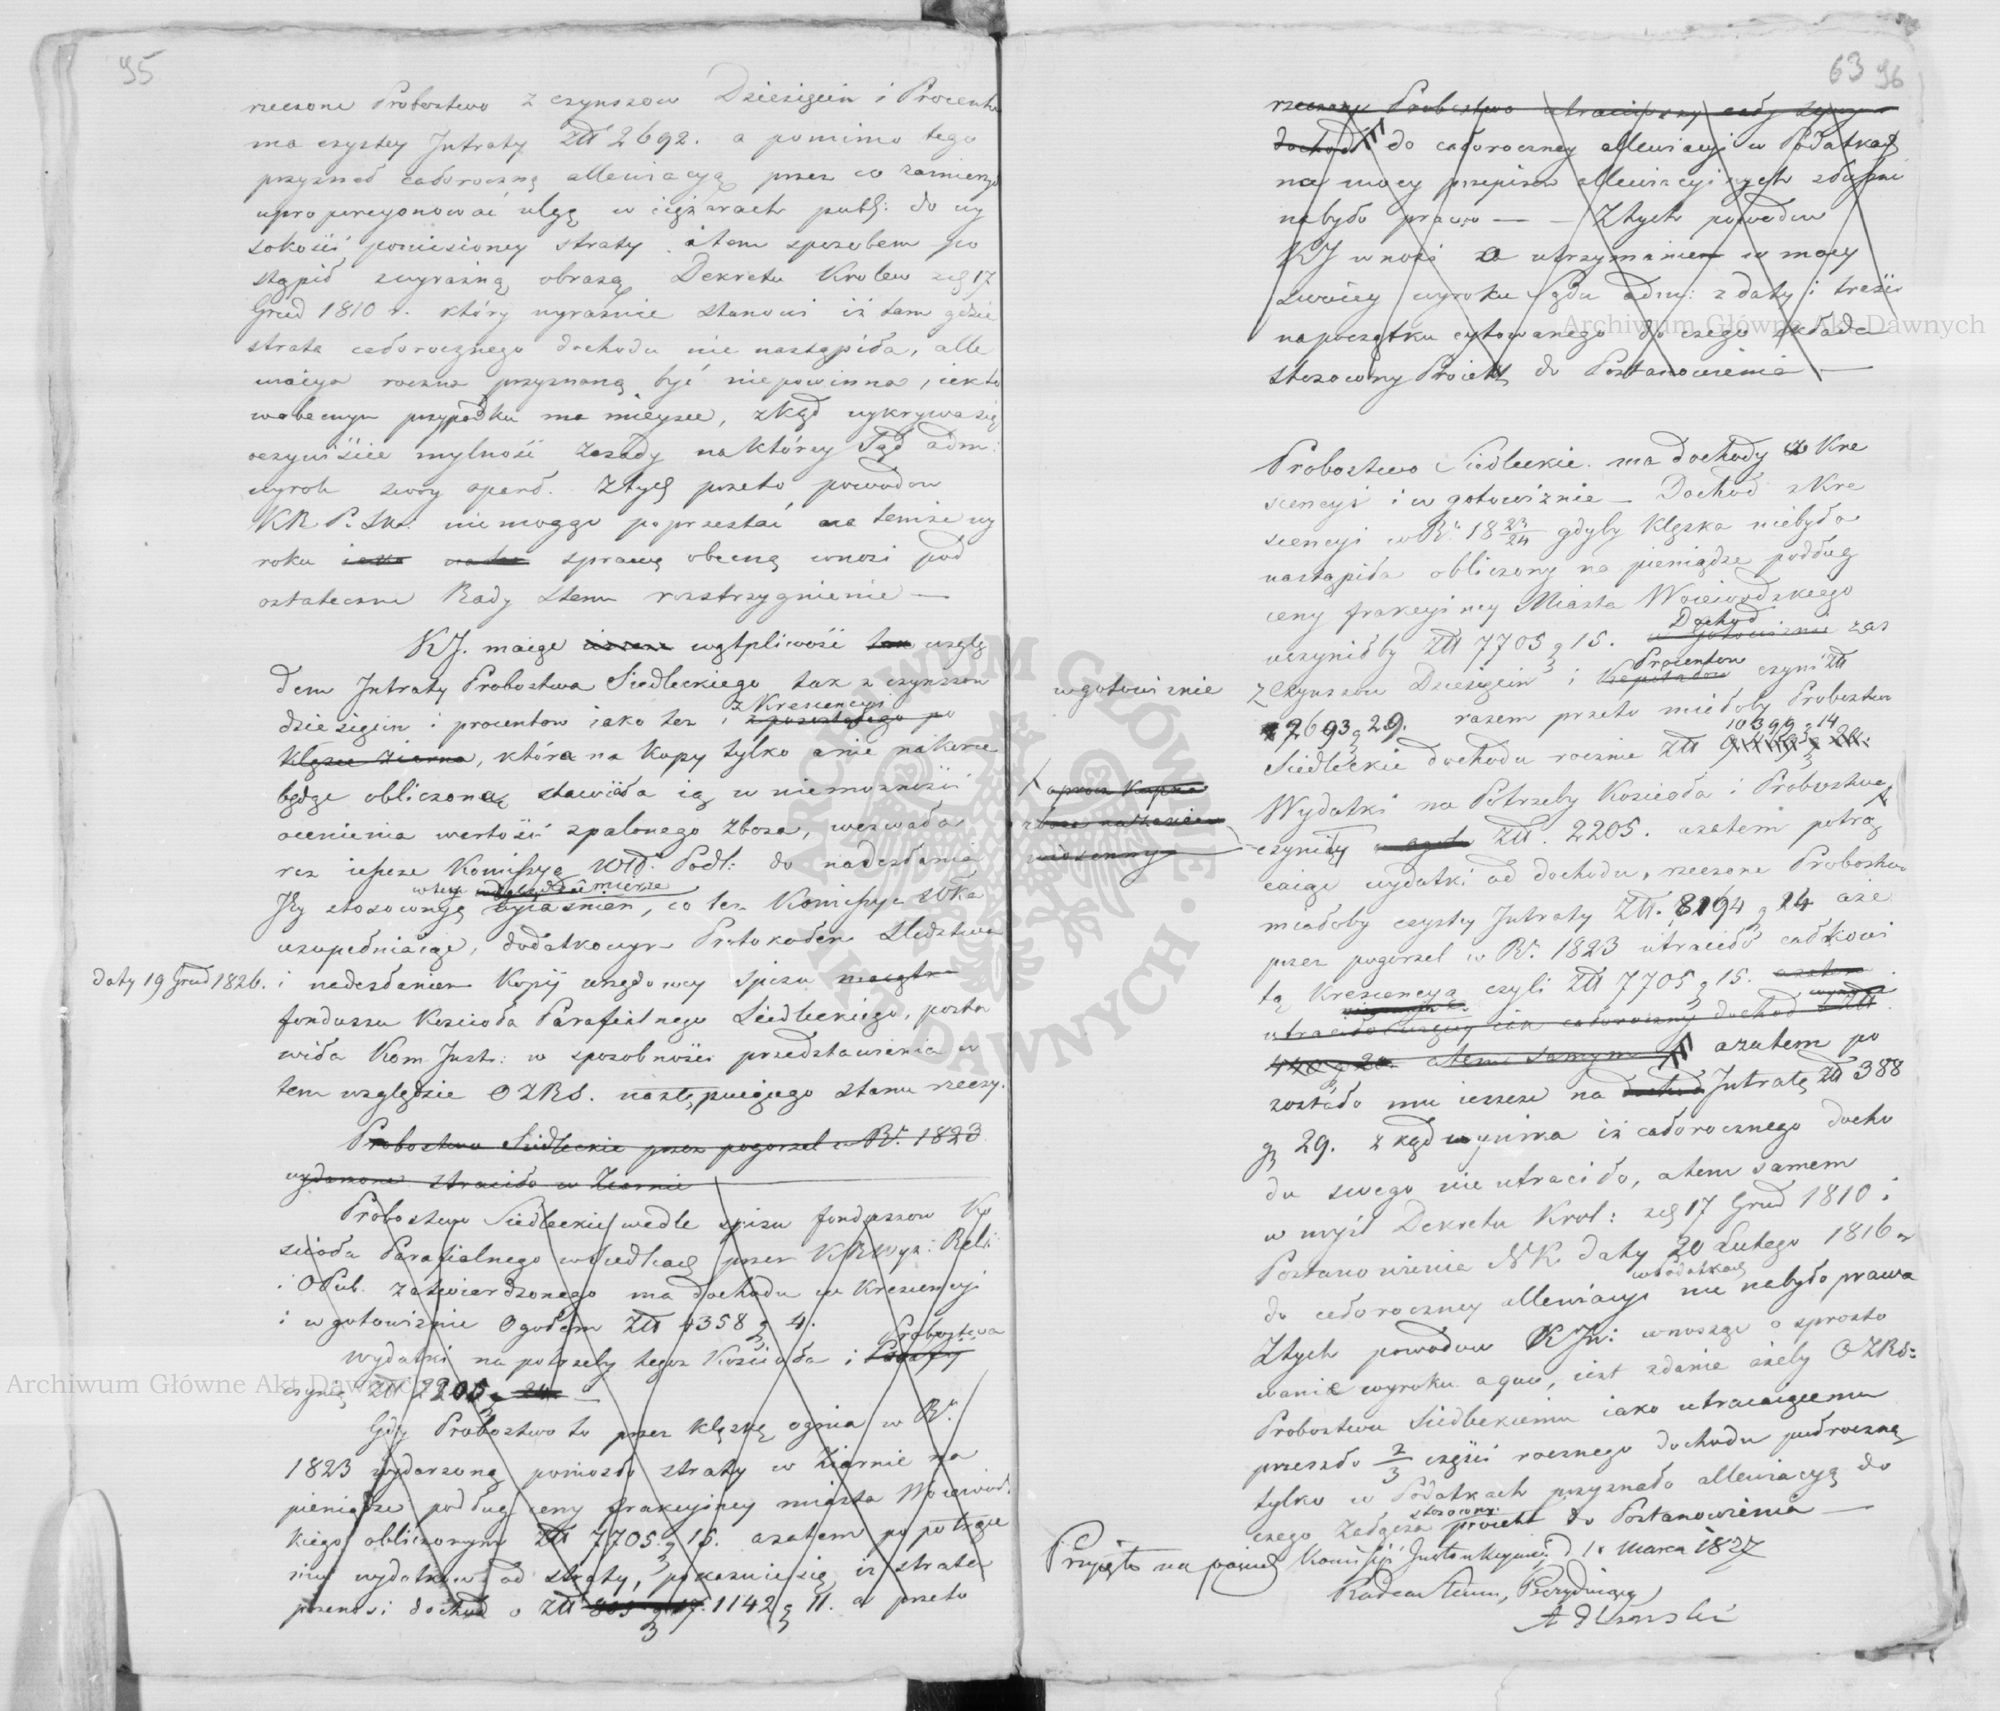 95
rzeczone Probostwo z czynszow Dziesięcin i Procentu
ma czystey Intraty Złł 2692. a pomimo tego
przyznał całoroczną allewiacyą przez co zamierzo
uproporcyonować ulgę w ciężarach publ: do wy
sokości poniesioney straty i tem sposobem po
stąpił z wyraźną obrazą Dekretu Krolew z d 17
Grud 1810 r. który wyraźnie stanowi iż tam gdzie
strata całorocznego dochodu nie nastąpiła, alle
wiacya roczna przyznaną być niepowinna, iak to
w obecnym przypadku ma mieysce, zkąd wykrywa się
oczywiście mylność zasady na którey Sąd adm:
wyrok swoy oparł. Z tych przeto powodow
KRP. Sk: nie mogąc poprzestać na temże wy
roku sprawę obecną wnosi pod
ostateczne Rady Stanu rozstrzygnienie —
KJ. maiąc wątpliwość wzglę
dem Intraty Probostwa Siedleckiego tak z czynszow
z Krescencyi
dziesięcin i procentow iako też i z pozostałego po
klęsce ziarna, która na kopy tylko a nie na korce
będąc obliczoną stawiała ią w niemożności
ocenienia wartości spalonego zboża, wezwała
raz ieszcze Komissyą Wdz. Podl: do nadesłania
w tey mierze
Jey stosownych wyiaśnień, co też Komissya Wdzka
uzupełniaiąc, dodatkowym Protokołem Sledztwa
daty 19 Grud 1826. i nadesłaniem Kopij urzędowey spisu maiątku
funduszu Kościoła Parafialnego Siedleckiego, posta
wiła Kom Inst: w sposobności przedstawienia w
tem względzie OZRS. następuiącego stanu rzeczy.
Probostwo Siedleckie przez pogorzel w R. 1823
wydarzone straciło w Ziarnie
Probostwo Siedleckie wedle spisu funduszow Ko
scioła Parafialnego w Siedlcach przez KRWyz: Reli:
i OPub. zatwierdzonego ma dochodu w Krescencyi
i w gotowiźnie Ogołem Złł 4358 g 4.
Probostwa
Wydatki na potrzeby tegoż Kościoła i Parafij
czynią Złł 2205
Gdy Probostwo to przez klęskę ognia w R.
1823 wydarzoną poniosło straty w Ziarnie na
pieniądze podług ceny frakcyiney miasta Woiewodz
kiego obliczonym Złł 7705 g 15. a zatem po potrące
niu wydatkow od straty, pokazuie się iż strata
przenosi dochod o Złł 1142 g 11. a przeto
63 96
rzeczone Probostwo utraciwszy cały swoy
dochod do całoroczney allewiacyi w Podatkach
na mocy przepisow allewiacyinych słuszne
nabyło prawo — — Z tych powodow
KJ wnosi za utrzymaniem w mocy
swoiey wyroku Sądu adm: z daty i treści
na początku cytowanego do czego składa
stosowny Proiekt do Postanowienia —
Probostwo Siedleckie ma dochody w Kre
scencyi i w gotowiźnie — Dochod z Kre
scencyi w R. 18 23/24 gdyby Klęska niebyła
nastąpiła obliczony na pieniądze podług
ceny frakcyiney Miasta Woiewodzkiego
Dochod
uczyniłby Złł 7705 g 15. w gotowiznie zaś
Procentow
w gotowiznie z Czynszow Dziesięcin i Kapitałow czyni Złł
2693 g 29. razem przeto miałoby Probostwo
10399 g 14
Siedleckie dochodu rocznie Złł
oprocz Kupna
zboża na zasiew
wiosenny
Wydatki na Potrzeby Kościoła i Probostwa
czyniły Złł. 2205. a zatem potrą
caiąc wydatki od dochodu, rzeczone Probostwo
miałoby czystey Intraty Złł. 8194 g 14 aże
przez pogorzel w R. 1823 utraciło całkowi
tą Krescencyą czyli Złł 7705 g 15. a zatem
utraciło więcey iak całoroczny dochod
a tem samym a zatem po
zostało mu ieszcze na dochod Intratę Złł 388
g 29. zkąd wynika iż całorocznego docho
du swego nie utraciło, a tem samem
w myśl Dekretu Krol: z d 17 Grud 1810 i
Postanowienia NK. daty 20 Lutego 1816 r
w Podatkach
do całoroczney allewiacyi nie nabyło prawa
Z tych powodow KJn: wnosząc o sprosto
wanie wyroku a quo, iest zdania ażeby OZRS:
Probostwu Siedleckiemu iako utracaiącemu
przeszło 2/3 części rocznego dochodu pułroczną
tylko w Podatkach przyznało allewiacyą do
stosowny
czego załącza proiekt do Postanowienia —
Przyięto na Komisyi Instrukcyiney d 1. Marca 1827
Radca Stanu, Prezyduiący